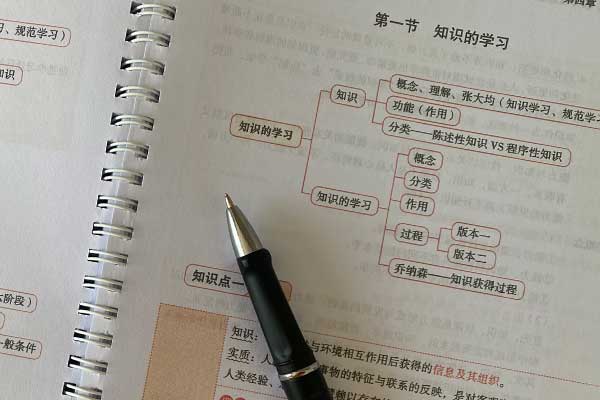 第四章
第一节 知识的学习
习、规范学习）
知识
概念、理解、张大均（知识学习、规范学习
知识
功能（作用）
分类——陈述性知识 VS 程序性知识
知识的学习
概念
分类
知识的学习
作用
过程
版本一
版本二
乔纳森——知识获得过程
知识点一
六阶段）
一般条件
知识：
与环境相互作用后获得的信息及其组织。
实质：人
事物的特征与联系的反映，是对客观
人类经验、